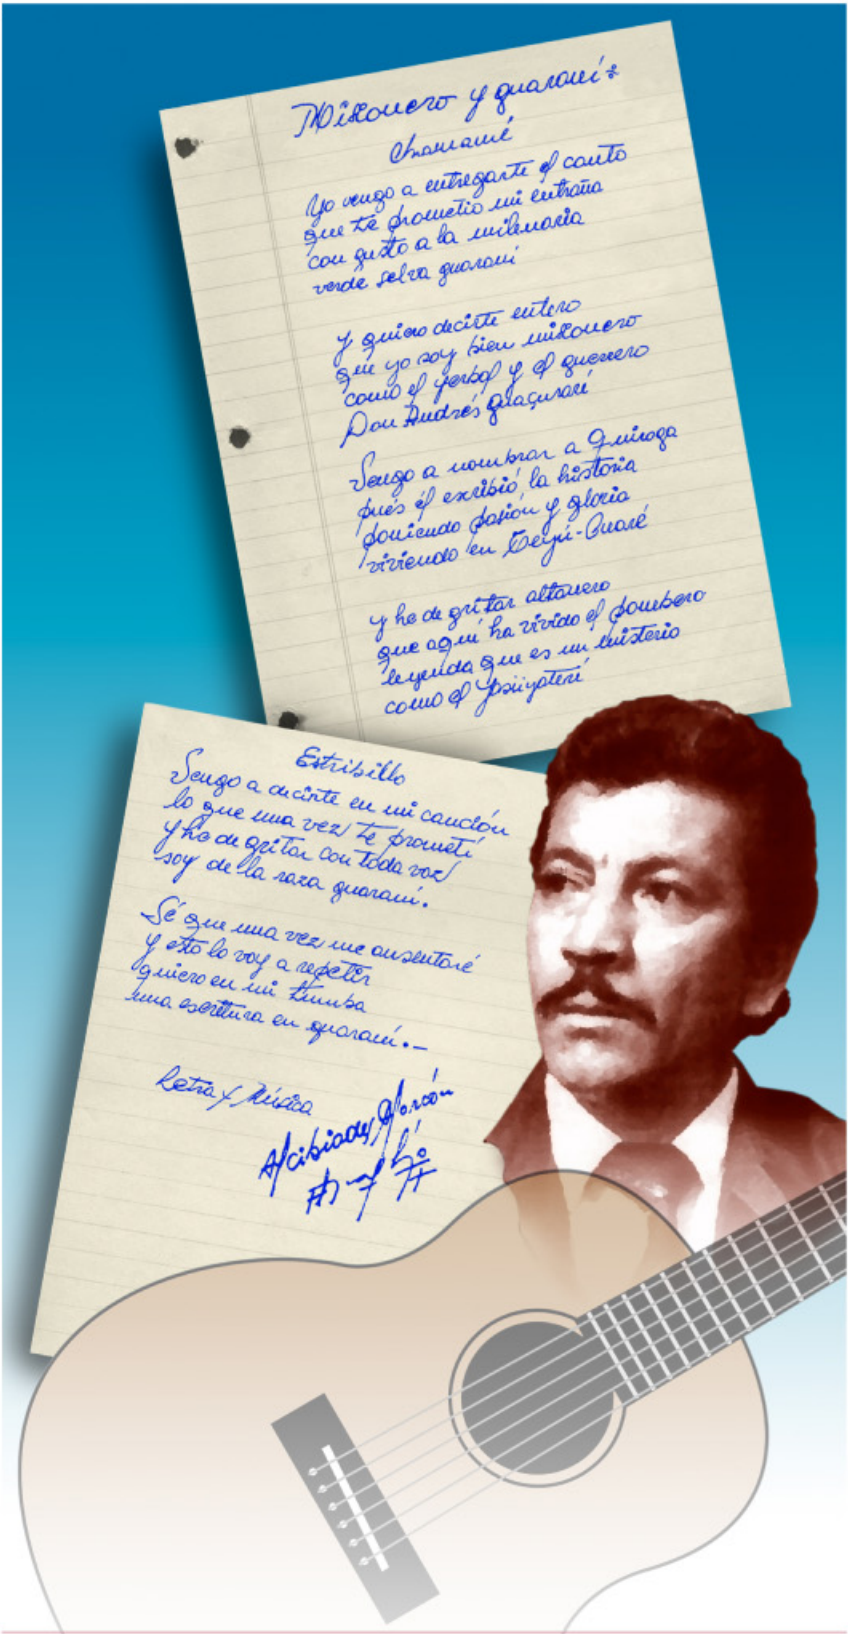 Misionero y guaraní:
Chamamé
Yo vengo a entregarte el canto
que te prometió mi entraña
con gusto a la milenaria
verde selva guaraní
y quiero decirte entero
que yo soy bien misionero
como el yerbal y el guerrero
Don Andrés Guaçurarí
Vengo a nombrar a Quiroga
pués él escribió la historia
poniendo pasión y gloria
viviendo en Teyú-Cuaré
y he de gritar altanero
que aquí ha vivido el pombero
leyenda que es un misterio
como el Yasiyateré
Estribillo
Vengo a decirte en mi canción
lo que una vez te prometí
y he de gritar con toda voz
soy de la raza guaraní.
Sé que una vez me ausentaré
y esto lo voy a repetir
quiero en mi tumba
una escritura en guaraní.-
Letra y Música
Alcibiades Alarcón